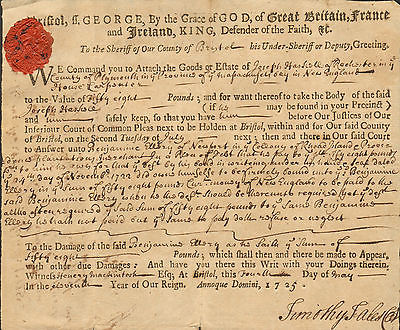 Bristol, ss. GEORGE, By the Grace of GOD, of Great Britain, France
and Ireland, KING, Defender of the Faith, &c.
To the Sheriff of Our County of Bristol his Under-Sheriff or Deputy, Greeting.
WE Command you to Attach the Goods or Estate of Joseph Haskole of Rochester in y
County of Plymouth in y Province of y Massachusets bay in New England
House Carpenter
to the Value of Fifty eight Pounds; and for want thereof to Take the Body of the said
Joseph Haskole (if he may be found in your Precinct)
and him safely keep, so that you have him before Our Justices of Our
Inferiour Court of Common Pleas next to be Holden at Bristol, within and for Our said County
of Bristol, on the Second Tuesday of July next; then and there in Our said Court
to Answer unto Benjamine Ellery of Newport in y Colony of Rhoad Island
in a Plea of Debt that he to y
day of November 1722 did owe himself to be firmly bound unto y Benjamine
Ellery in y Sum of fifty eight pounds Currant money of New England to be paid to the
said Benjamine Ellery
Sum of fifty eight pounds to y said Benjamine
Ellery he hath not paid but y same to pay doth refuse or neglect
To the Damage of the said Benjamine Ellery as he saith y Sum of
Fifty eight Pounds; which shall then and there be made to Appear,
with other due Damages: And have you there this Writ with your Doings therein.
Witness Henery Mackintosh Esq; At Bristol, this Fourth Day of May
in the Eleventh Year of Our Reign. Annoque Domini, 1725.
Timothy Fales